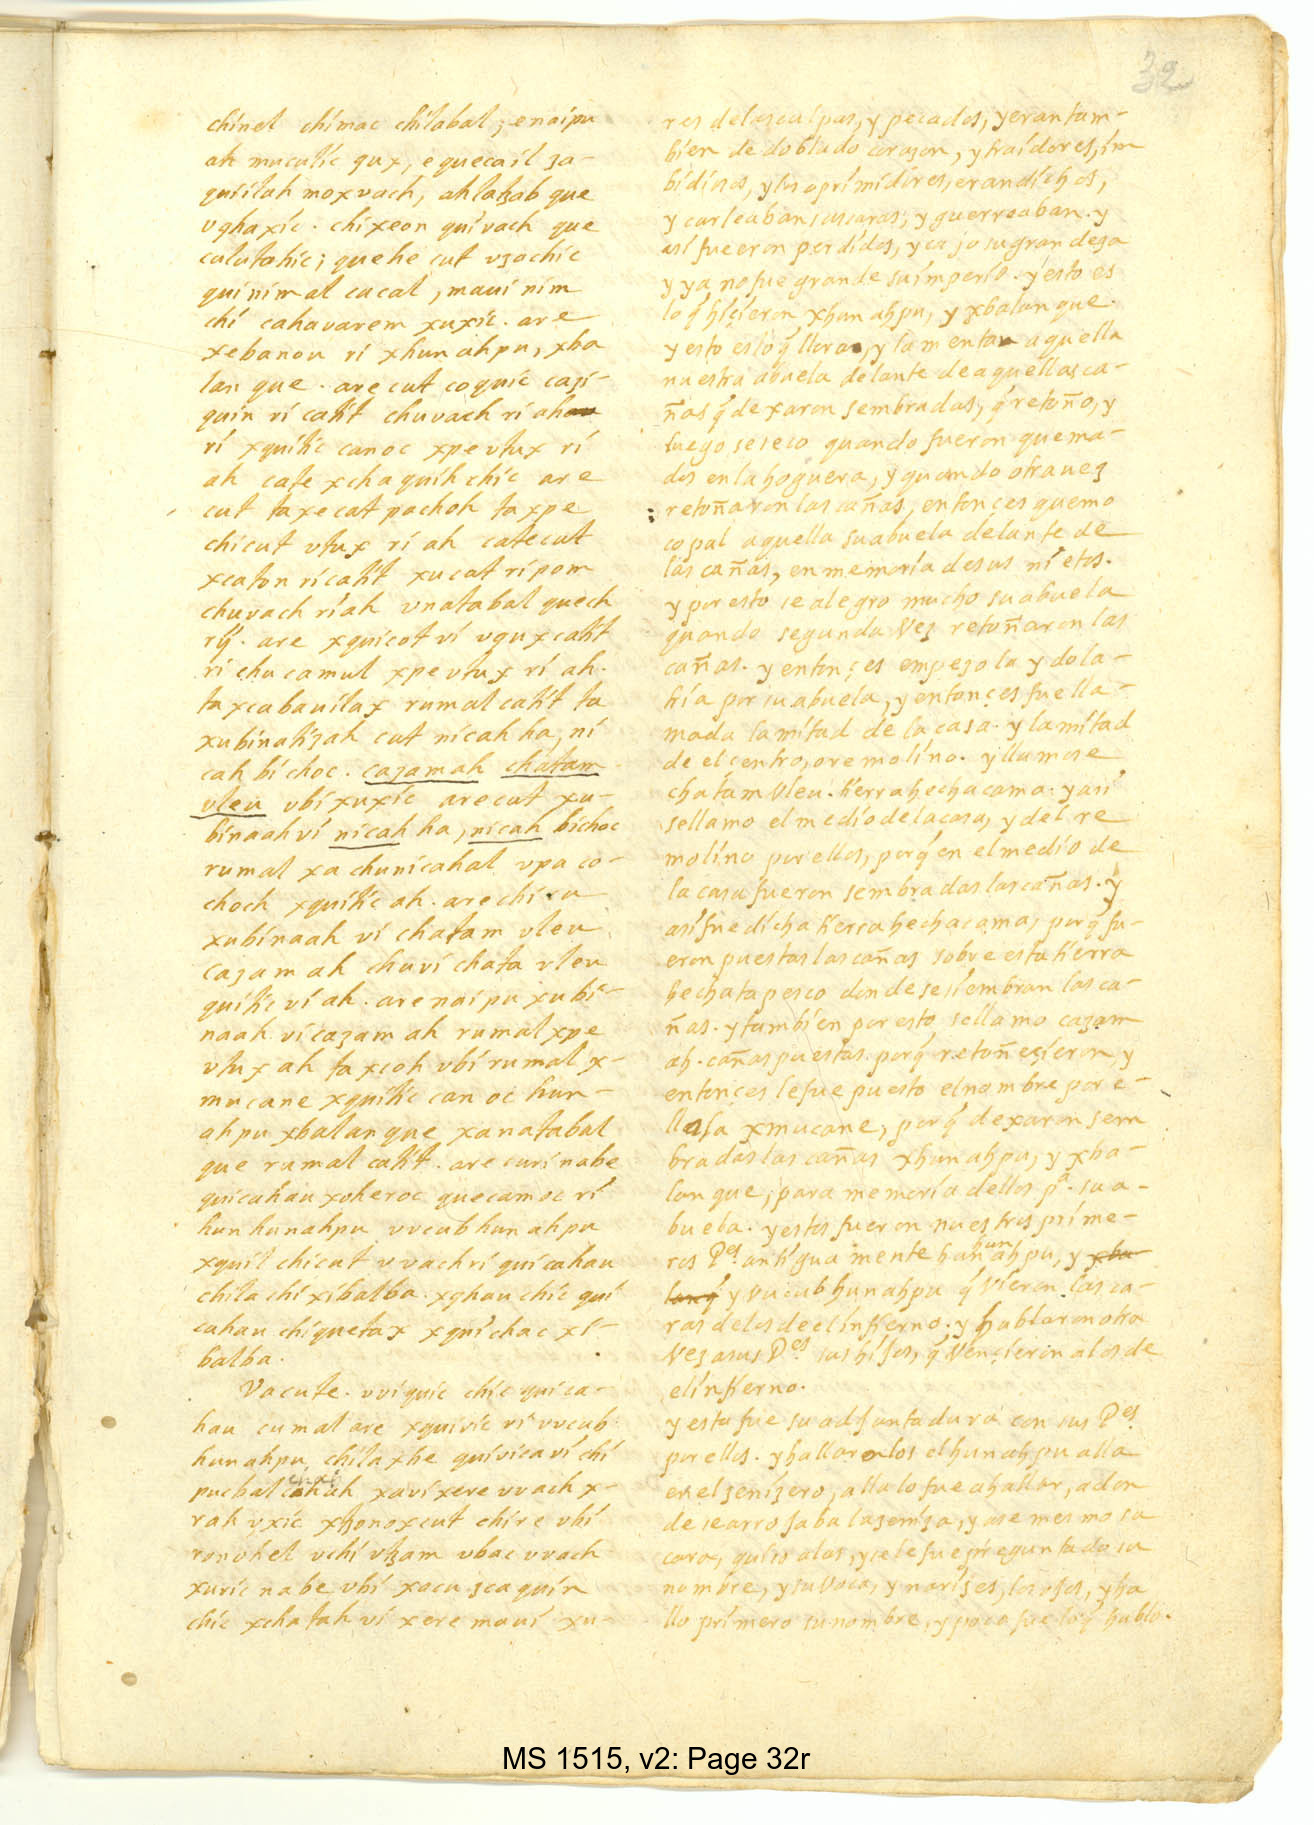 32
chinel chimac chilabal; enaipu
ah mucalic qux, e quecail za-
quiilah moxvach, ahlatzab que
vghaxic. chixeon quivach que
culutahic; quehe cut vzachic
quinimal cacal, maui nim
chi cahavarem xuxic. are
xebanou ri xhun ahpu, xba
lan que. are cut coquic cazi-
quin ri catit chuvach ri ah
ri xquitic canoc xpe vtux ri
ah cate xchaquih chic are
cut ta xecat pachoh ta xpe
chicut vtux ri ah catecut
xcaton ri catit xucat ri pom
chuvach ri ah vnatabal quech
rij. are xquicot vi vqux catit
ri chucamul xpe vtux ri ah.
ta xcabauilax rumal catit ta
xubinatizah cut nicah ha, ni
cah bichoc. cazam ah chatam
vleu vbi xuxic arecut xu-
binaah vi nicah ha, nicah bichoc
rumal xa chunicahal vpa co-
choch xquitic ah. are chi
xubinaah vi chatam vleu
cazam ah chuvi chata vleu
quitic vi ah. are naipu xubi-
naah vi cazam ah rumal xpe
vtux ah ta xcoh vbi rumal x-
mucane xquitic can oc hun-
ahpu xbalanque xanatabal
que rumal catit. are curi nabe
quicahau xoheroc quecamoc ri
hun hunahpu vvcub hun ahpu
xquil chicut v vach ri quicahau
chila chi xibalba. xghau chic qui
cahau chiquetax xquichac xi-
balba.
Vacute. vviquic chic qui ca-
hau cumal are xquivic ri vvcub
hunahpu, chila xbe quivica vi chi
pucbal chah xavi xere vvach x-
rah vxic xtzonox cut chire vbi
ronohel vchi vtzam vbac vvach
xuric nabe vbi xacu zcaquin
chic xchatah vi xere maui xu-
res delas culpas, y pecados, y eran tam-
bien de doblado corazon, y traidores, im
bidiosos, y los oprimidores, eran dichos,
y carleaban sus caras; y guerreaban. y
asi fueron perdidos, y cajo su grandeza
y ya no fue grande su imperio. y esto es
lo q̃ hiçieron xhun ahpu, y xbalan que.
y esto es lo q̃ llora, y lamenta aquella
nuestra abuela delante de aquellas ca-
ñas q̃ dexaron sembradas, q̃ retoño, y
luego se seco quando fueron quema-
dos en la hoguera, y quando otra uez
retoñaron las cañas, entonçes quemo
copal aquella su abuela delante de
las cañas, en memoria de sus nietos.
y por esto se alegro mucho su abuela
quando segunda Vez retoñaron las
cañas. y entonçes empezo la ydola-
tria por su abuela, y entonçes fue lla-
mada la mitad de la casa. y la mitad
de el centro, o remolino. y llamose
chatam vleu. tierra hecha cama. y asi
se llamo el medio de la casa, y del re
molino por ellos, porq̃ en el medio de
la casa fueron sembradas las cañas. y
asi fue dicha tierra hecha cama, porq̃ fu-
eron puestas las cañas sobre esta tierra
hecha tapesco donde se siembran las ca-
ñas. y tambien por esto se llamo cazam
ah. cañas puestas. porq̃ retoñeçieron, y
entonçes le fue puesto el nombre por e-
lla la xmucane, porq̃ dexaron sem
bradas las cañas xhun ahpu, y xba-
lan que, para memoria dellos pa. su a-
buela. y estos fueron nuestros prime-
ros Pes. antiguamente hun hun ahpu, y xba-
lanq̃ y vucub hunahpu q̃ Vieron las ca-
ras de los de el infierno. y hablaron otra
Vez a sus Pes. sus hijos, q̃ Vençieron a los de
el infierno.
y esta fue su adjuntadura con sus Pes
por ellos. y hallaronlos el hunahpu alla
en el zenizero, alla lo fue a hallar, adon
de se arrojaba la zeniza, y ase mesmo su
cara, y se le fue preguntado su
nombre, y su voca, y narizes, los ojos, y ha
llo primero su nombre, y poco fue lo q̃ hablo.
MS 1515, v2: Page 32r